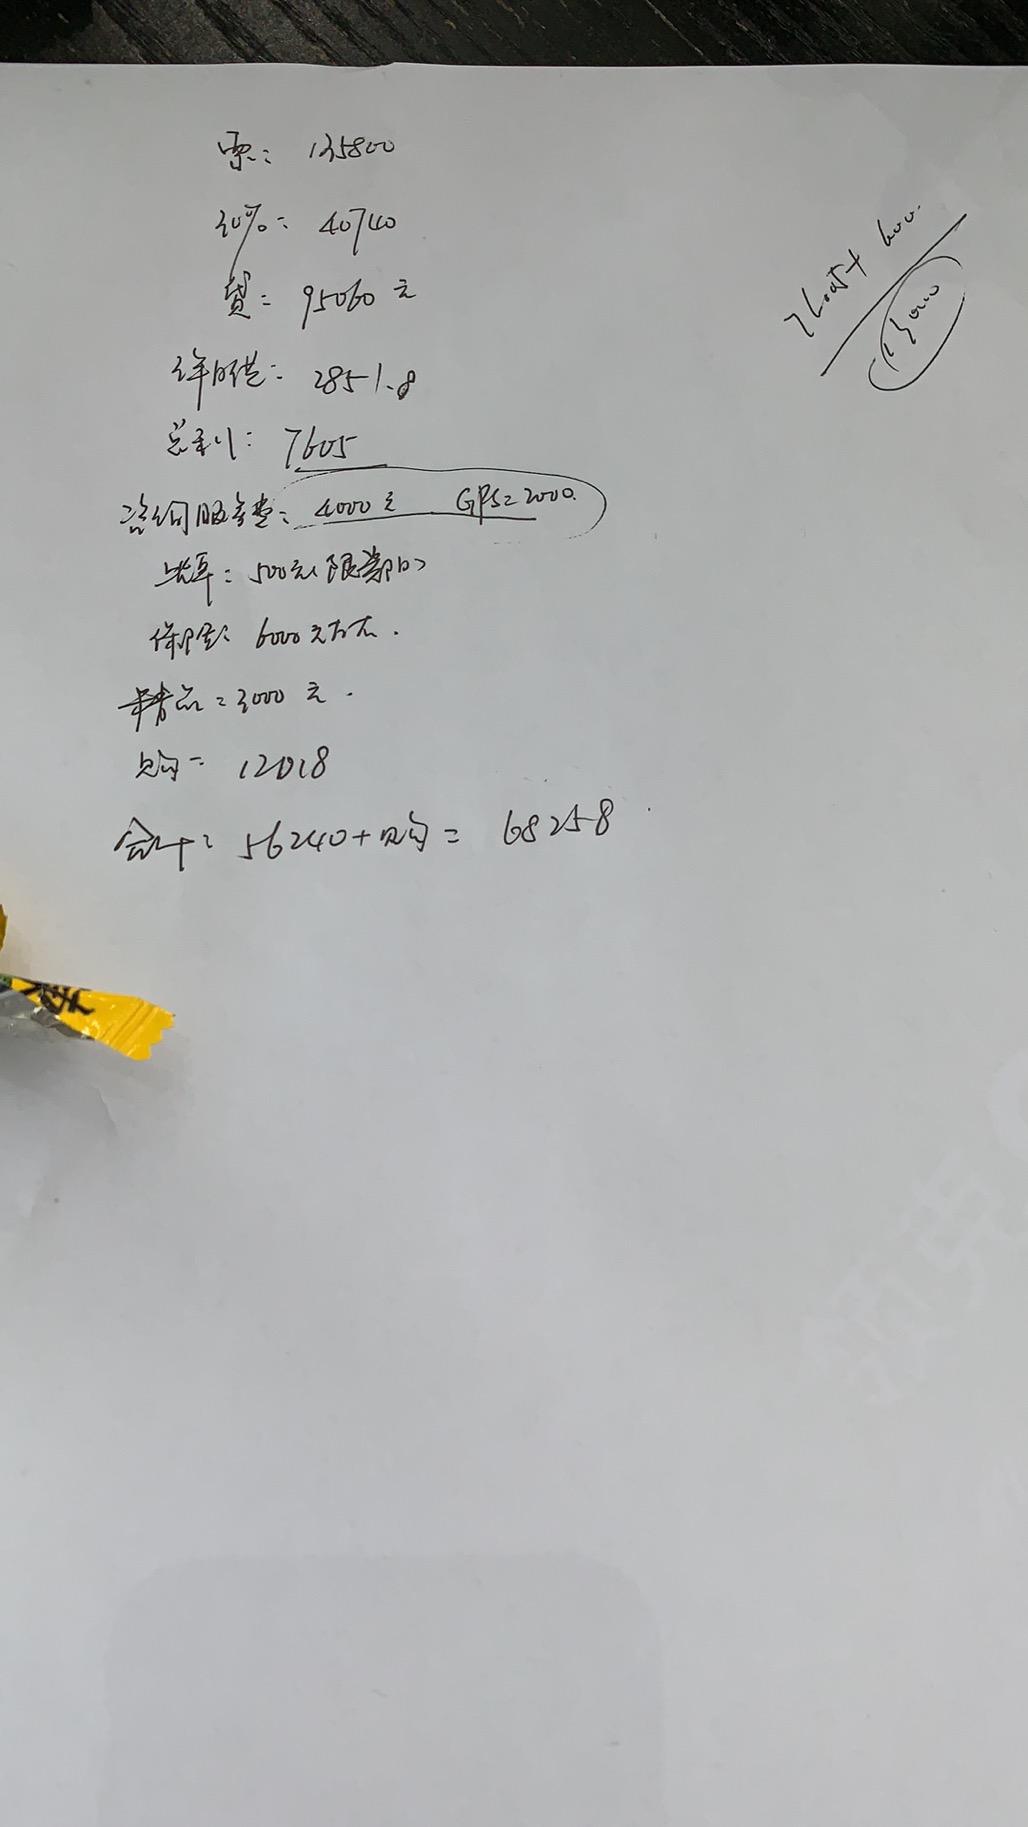 票: 135800
30%: 40740
贷: 95060元
3年月供: 2851.8
总利: 7605
咨询服务费: 4000元 GPS=2000.
上牌: 500元(限贵阳)
保险: 6000元左右.
精品=3000元.
购= 12018
合计: 56240+购= 68258
7605+ 600.
13000